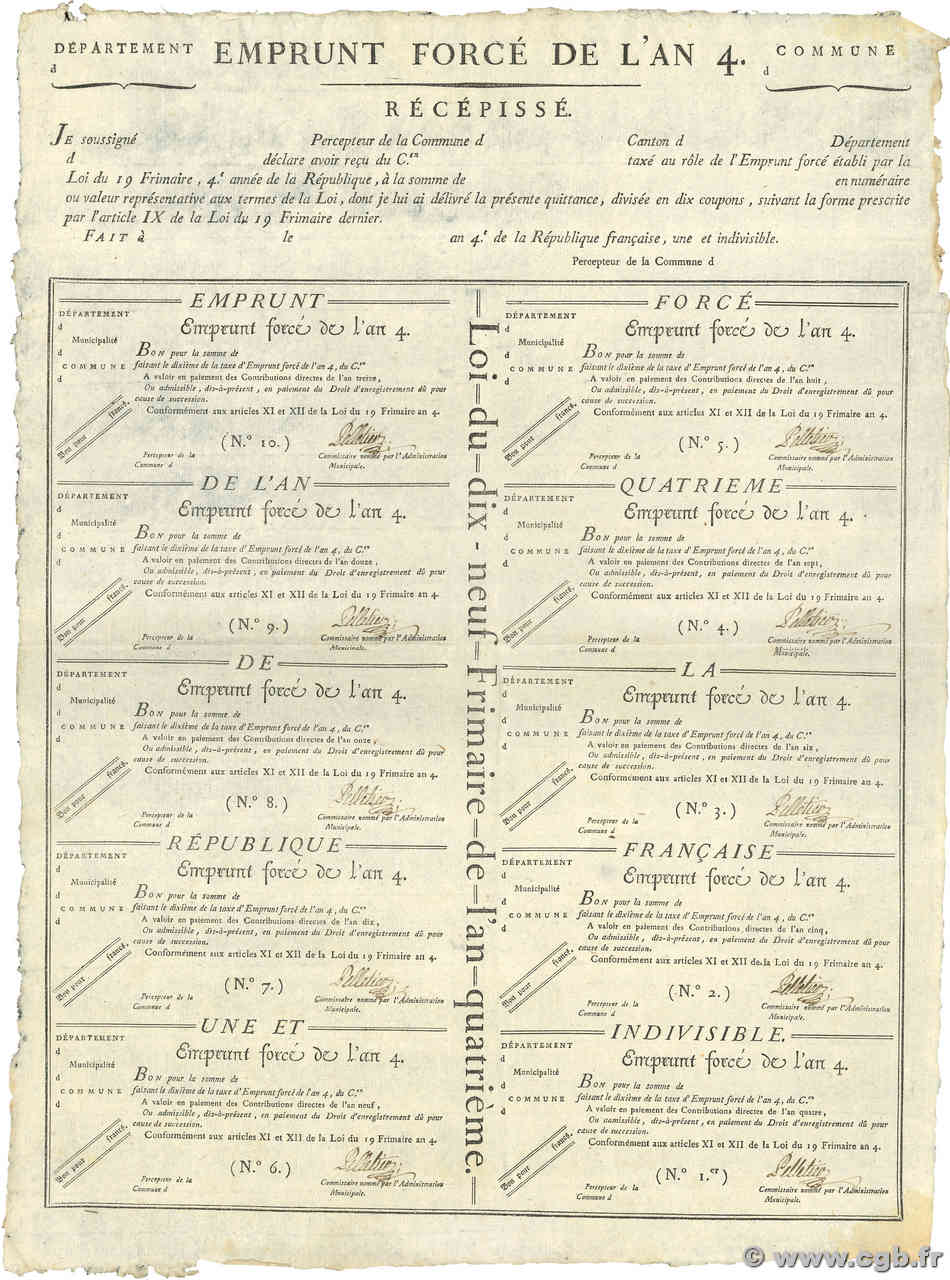 DÉPARTEMENT EMPRUNT FORCÉ DE L'AN 4. COMMUNE
d d
RÉCÉPISSÉ.
JE soussigné Percepteur de la Commune d Canton d Département
d déclare avoir reçu du C.en taxé au rôle de l'Emprunt forcé établi par la
Loi du 19 Frimaire, 4.e année de la République, à la somme de en numéraire
ou valeur représentative aux termes de la Loi, dont je lui ai délivré la présente quittance, divisée en dix coupons, suivant la forme prescrite
par l'article IX de la Loi du 19 Frimaire dernier.
FAIT à le an 4.e de la République française, une et indivisible.
Percepteur de la Commune d
Loi-du-dix-neuf-Frimaire-de-l'an-quatrième.
EMPRUNT
DÉPARTEMENT
d
Emprunt forcé de l'an 4.
Municipalité
d
BON pour la somme de
COMMUNE faisant le dixième de la taxe d'Emprunt forcé de l'an 4, du C.en
d
A valoir en paiement des Contributions directes de l'an treize,
Ou admissible, dis-à-présent, en paiement du Droit d'enregistrement dû pour
cause de succession.
Conformément aux articles XI et XII de la Loi du 19 Frimaire an 4.
Bon pour francs.
(N.º 10.) Pelletier
Percepteur de la Commissaire nommé par l'Administration
Commune d Municipale.
FORCÉ
DÉPARTEMENT
d
Emprunt forcé de l'an 4.
Municipalité
d
BON pour la somme de
COMMUNE faisant le dixième de la taxe d'Emprunt forcé de l'an 4, du C.en
d
A valoir en paiement des Contributions directes de l'an huit,
Ou admissible, dis-à-présent, en paiement du Droit d'enregistrement dû pour
cause de succession.
Conformément aux articles XI et XII de la Loi du 19 Frimaire an 4.
Bon pour francs.
(N.º 5.) Pelletier
Percepteur de la Commissaire nommé par l'Administration
Commune d Municipale.
DE L'AN
DÉPARTEMENT
d
Emprunt forcé de l'an 4.
Municipalité
d
BON pour la somme de
COMMUNE faisant le dixième de la taxe d'Emprunt forcé de l'an 4, du C.en
d
A valoir en paiement des Contributions directes de l'an douze,
Ou admissible, dis-à-présent, en paiement du Droit d'enregistrement dû pour
cause de succession.
Conformément aux articles XI et XII de la Loi du 19 Frimaire an 4.
Bon pour francs.
(N.º 9.) Pelletier
Percepteur de la Commissaire nommé par l'Administration
Commune d Municipale.
QUATRIEME
DÉPARTEMENT
d
Emprunt forcé de l'an 4.
Municipalité
d
BON pour la somme de
COMMUNE faisant le dixième de la taxe d'Emprunt forcé de l'an 4, du C.en
d
A valoir en paiement des Contributions directes de l'an sept,
Ou admissible, dis-à-présent, en paiement du Droit d'enregistrement dû pour
cause de succession.
Conformément aux articles XI et XII de la Loi du 19 Frimaire an 4.
Bon pour francs.
(N.º 4.) Pelletier
Percepteur de la Commissaire nommé par l'Administration
Commune d Municipale.
DE
DÉPARTEMENT
d
Emprunt forcé de l'an 4.
Municipalité
d
BON pour la somme de
COMMUNE faisant le dixième de la taxe d'Emprunt forcé de l'an 4, du C.en
d
A valoir en paiement des Contributions directes de l'an onze,
Ou admissible, dis-à-présent, en paiement du Droit d'enregistrement dû pour
cause de succession.
Conformément aux articles XI et XII de la Loi du 19 Frimaire an 4.
Bon pour francs.
(N.º 8.) Pelletier
Percepteur de la Commissaire nommé par l'Administration
Commune d Municipale.
LA
DÉPARTEMENT
d
Emprunt forcé de l'an 4.
Municipalité
d
BON pour la somme de
COMMUNE faisant le dixième de la taxe d'Emprunt forcé de l'an 4, du C.en
d
A valoir en paiement des Contributions directes de l'an six,
Ou admissible, dis-à-présent, en paiement du Droit d'enregistrement dû pour
cause de succession.
Conformément aux articles XI et XII de la Loi du 19 Frimaire an 4.
Bon pour francs.
(N.º 3.) Pelletier
Percepteur de la Commissaire nommé par l'Administration
Commune d Municipale.
RÉPUBLIQUE
DÉPARTEMENT
d
Emprunt forcé de l'an 4.
Municipalité
d
BON pour la somme de
COMMUNE faisant le dixième de la taxe d'Emprunt forcé de l'an 4, du C.en
d
A valoir en paiement des Contributions directes de l'an dix,
Ou admissible, dis-à-présent, en paiement du Droit d'enregistrement dû pour
cause de succession.
Conformément aux articles XI et XII de la Loi du 19 Frimaire an 4.
Bon pour francs.
(N.º 7.) Pelletier
Percepteur de la Commissaire nommé par l'Administration
Commune d Municipale.
FRANÇAISE
DÉPARTEMENT
d
Emprunt forcé de l'an 4.
Municipalité
d
BON pour la somme de
COMMUNE faisant le dixième de la taxe d'Emprunt forcé de l'an 4, du C.en
d
A valoir en paiement des Contributions directes de l'an cinq,
Ou admissible, dis-à-présent, en paiement du Droit d'enregistrement dû pour
cause de succession.
Conformément aux articles XI et XII de la Loi du 19 Frimaire an 4.
Bon pour francs.
(N.º 2.) Pelletier
Percepteur de la Commissaire nommé par l'Administration
Commune d Municipale.
UNE ET
DÉPARTEMENT
d
Emprunt forcé de l'an 4.
Municipalité
d
BON pour la somme de
COMMUNE faisant le dixième de la taxe d'Emprunt forcé de l'an 4, du C.en
d
A valoir en paiement des Contributions directes de l'an neuf,
Ou admissible, dis-à-présent, en paiement du Droit d'enregistrement dû pour
cause de succession.
Conformément aux articles XI et XII de la Loi du 19 Frimaire an 4.
Bon pour francs.
(N.º 6.) Pelletier
Percepteur de la Commissaire nommé par l'Administration
Commune d Municipale.
INDIVISIBLE.
DÉPARTEMENT
d
Emprunt forcé de l'an 4.
Municipalité
d
BON pour la somme de
COMMUNE faisant le dixième de la taxe d'Emprunt forcé de l'an 4, du C.en
d
A valoir en paiement des Contributions directes de l'an quatre,
Ou admissible, dis-à-présent, en paiement du Droit d'enregistrement dû pour
cause de succession.
Conformément aux articles XI et XII de la Loi du 19 Frimaire an 4.
Bon pour francs.
(N.º 1.er) Pelletier
Percepteur de la Commissaire nommé par l'Administration
Commune d Municipale.
© www.cgb.fr